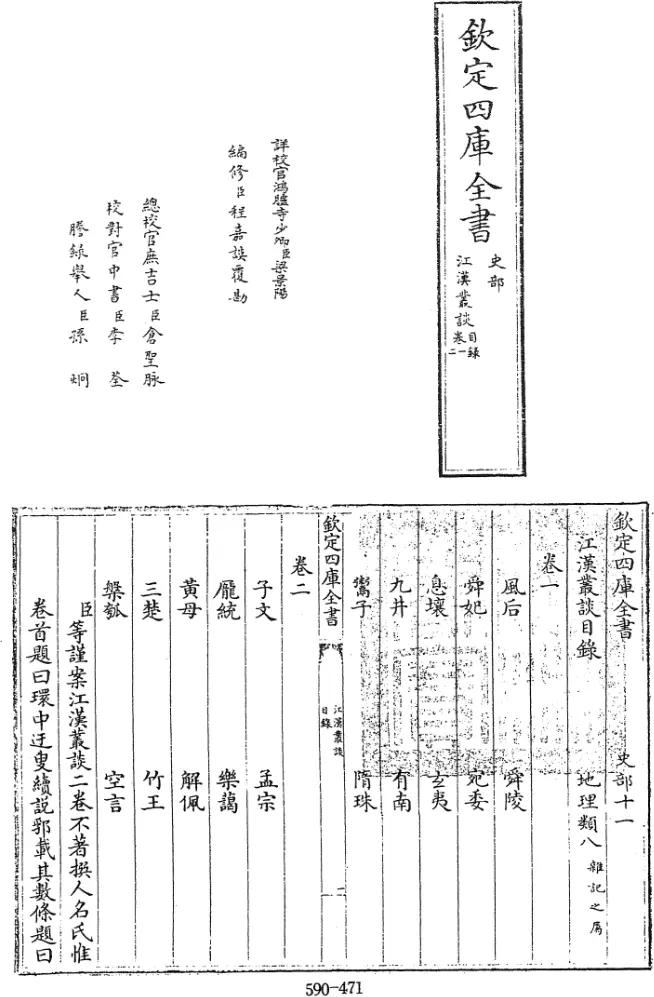 欽定四庫全書
史部
江漢叢談
目錄
卷一
二
詳校官鴻臚寺少卿臣梁景陽
編修臣程嘉謨覆勘
總校官庶吉士臣倉聖脉
校對官中書臣李荃
謄錄舉人臣孫炯
欽定四庫全書 史部十一
江漢叢談目錄 地理類八 雜記之屬
卷一
風后 舜陵
舜妃 宛委
息壤 玄夷
九井 有南
鬻子 隋珠
欽定四庫全書
江漢叢談
目錄
二
卷二
子文 孟宗
龎統 樂藹
黃母 解佩
三楚 竹王
槃瓠 空言
臣等謹案江漢叢談二卷不著撰人名氏惟
卷首題曰環中迂叟續説郛載其數條題曰
590-471